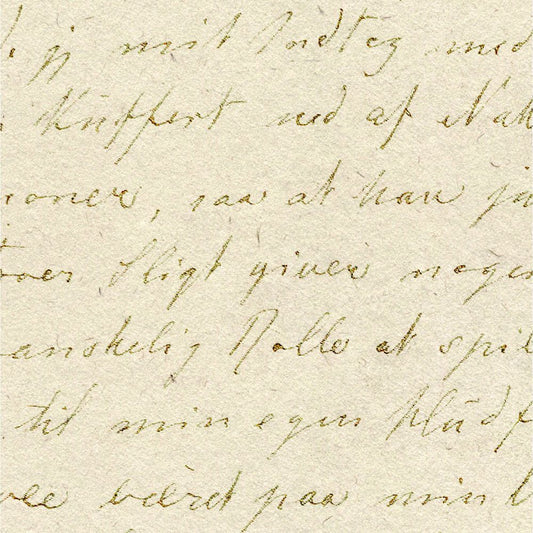 jeg mit Indtog med
Kuffert ned af Nak
ioner, saa at han ju
over Sligt giver nogen
anskelig Rolle at spil
til min egen Klūdf
vee været paa min